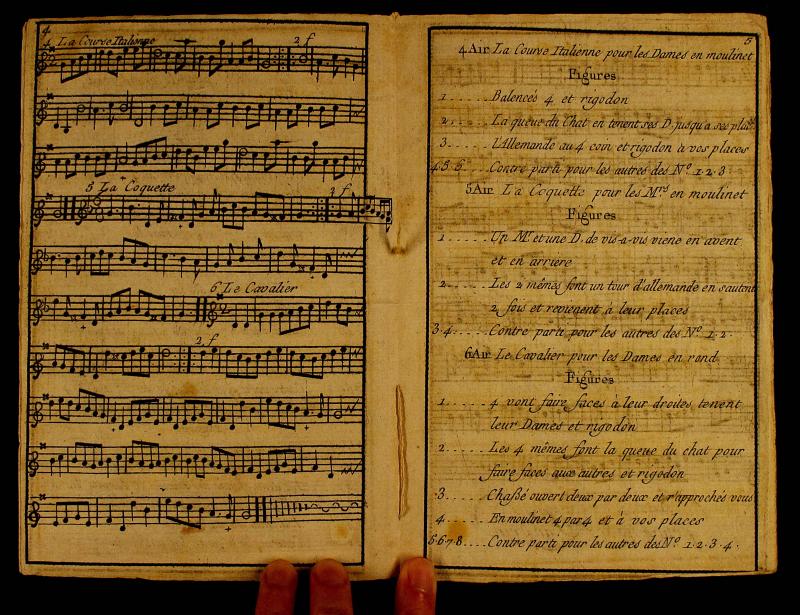 4
4 La Course Italienne 2 f
5 La Coquette 3 f
6 Le Cavalier
2 f
5
4 Air La Course Italienne pour les Dames en moulinet
Figures
1 ..... Balencés 4 et rigodon
2 ..... La queue du Chat en tenent ses D. jusqu'a ses places
3 ..... L'Allemande au 4 coin et rigodon à vos places
4.5.6 .... Contre parti pour les autres des Nº 1.2.3.
5 Air La Coquette pour les Mrs en moulinet
Figures
1 ...... Un Mr et une D. de vis-a-vis viene en avent
et en arriere
2 ...... Les 2 mêmes font un tour d'allemande en sautent
2 fois et revienent à leur places
3.4 ..... Contre parti pour les autres des Nº 1.2.
6 Air Le Cavalier pour les Dames en rond
Figures
1 ...... 4 vont faire faces à leur droites, tenent
leur Dames et rigodon
2 ...... Les 4 mêmes font la queue du chat pour
faire faces aux autres et rigodon
3 ...... Chassé ouvert deux par deux et r'approchés vous
4 ...... En moulinet 4 par 4 et à vos places
5.6.7.8 .... Contre parti pour les autres des Nº 1.2.3.4.